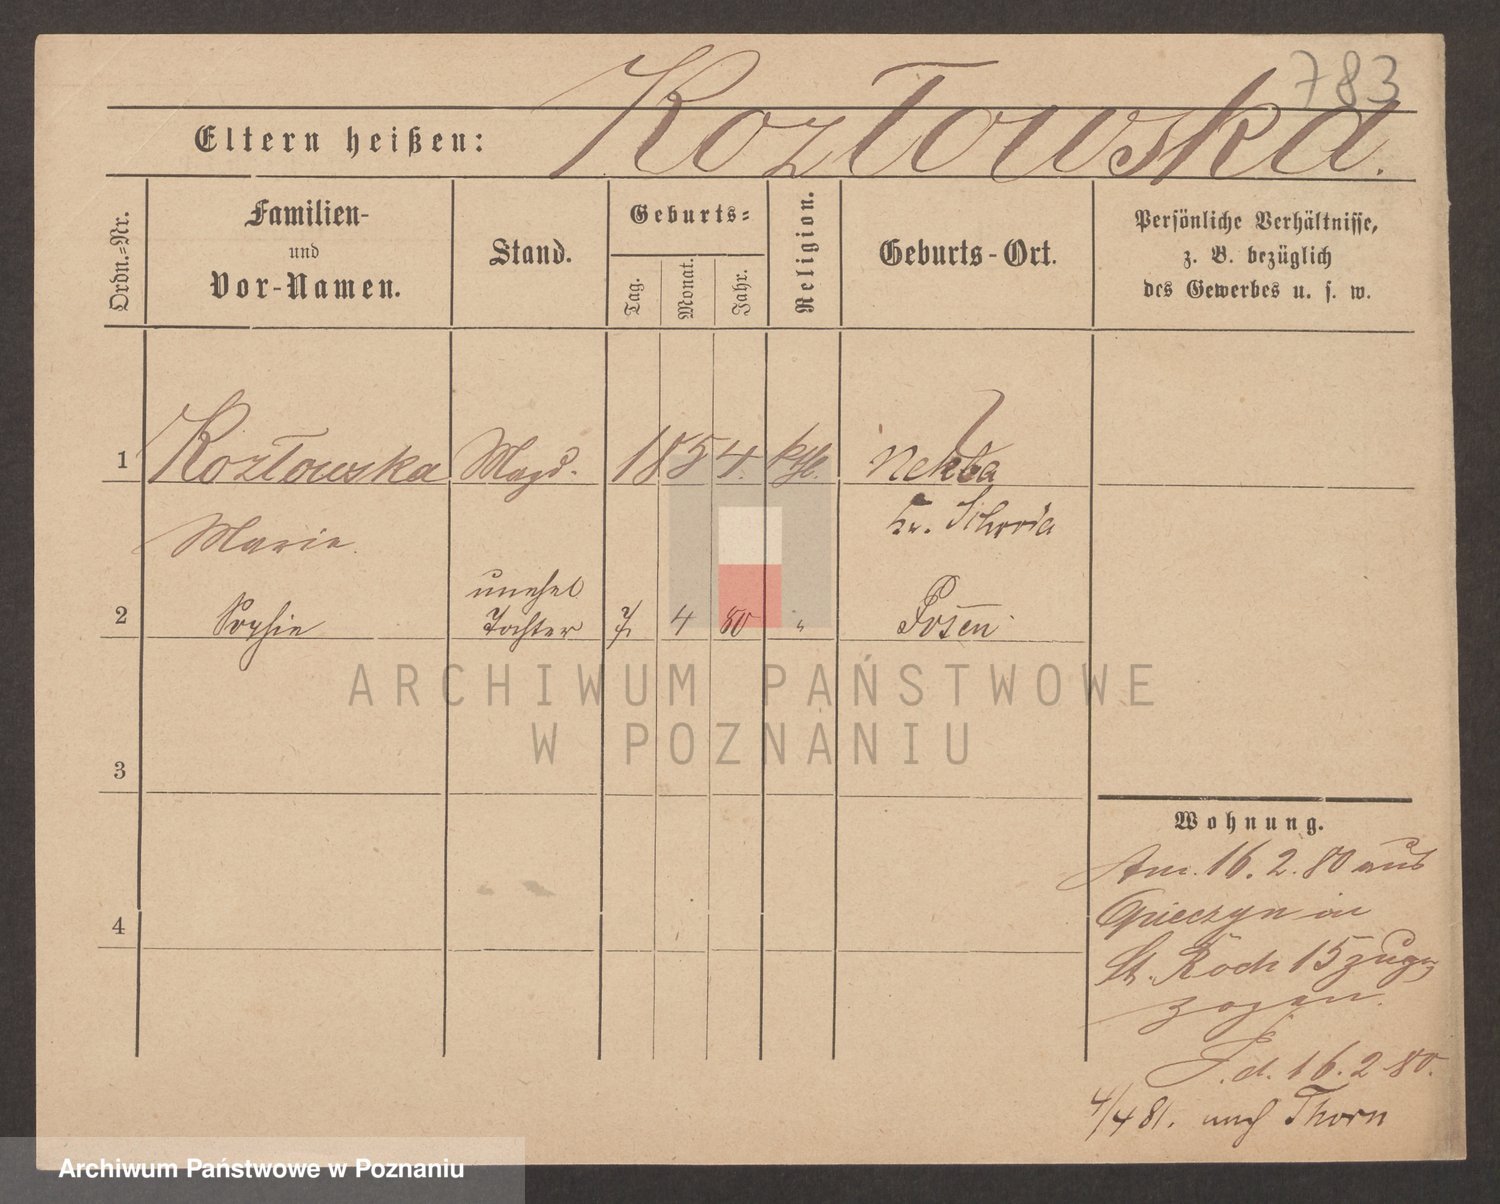 783
Eltern heißen: Kozłowska.
Ordn.-Nr.
Familien-
und
Vor-Namen.
Stand.
Geburts-
Tag.
Monat.
Jahr.
Religion.
Geburts-Ort.
Persönliche Verhältnisse,
z. B. bezüglich
des Gewerbes u. s. w.
1 Kozłowska Magd. 1854. kth. Nekla
Kr. Schroda
Marie.
unehel
2 Sophie Tochter 7. 4 80 " Posen
ARCHIWUM PAŃSTWOWE
W POZNANIU
3
Wohnung.
Am 16.2.80 aus
in
4
St. Roch 15 zuge
zogen.
P. d. 16.2.80.
4/4 81. nach Thorn
Archiwum Państwowe w Poznaniu